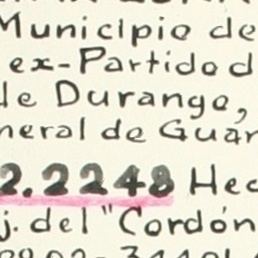 Municipio de
ex-Partido d
de Durango,
neral de Guar
2.2248 Hec
j. del "Cordón